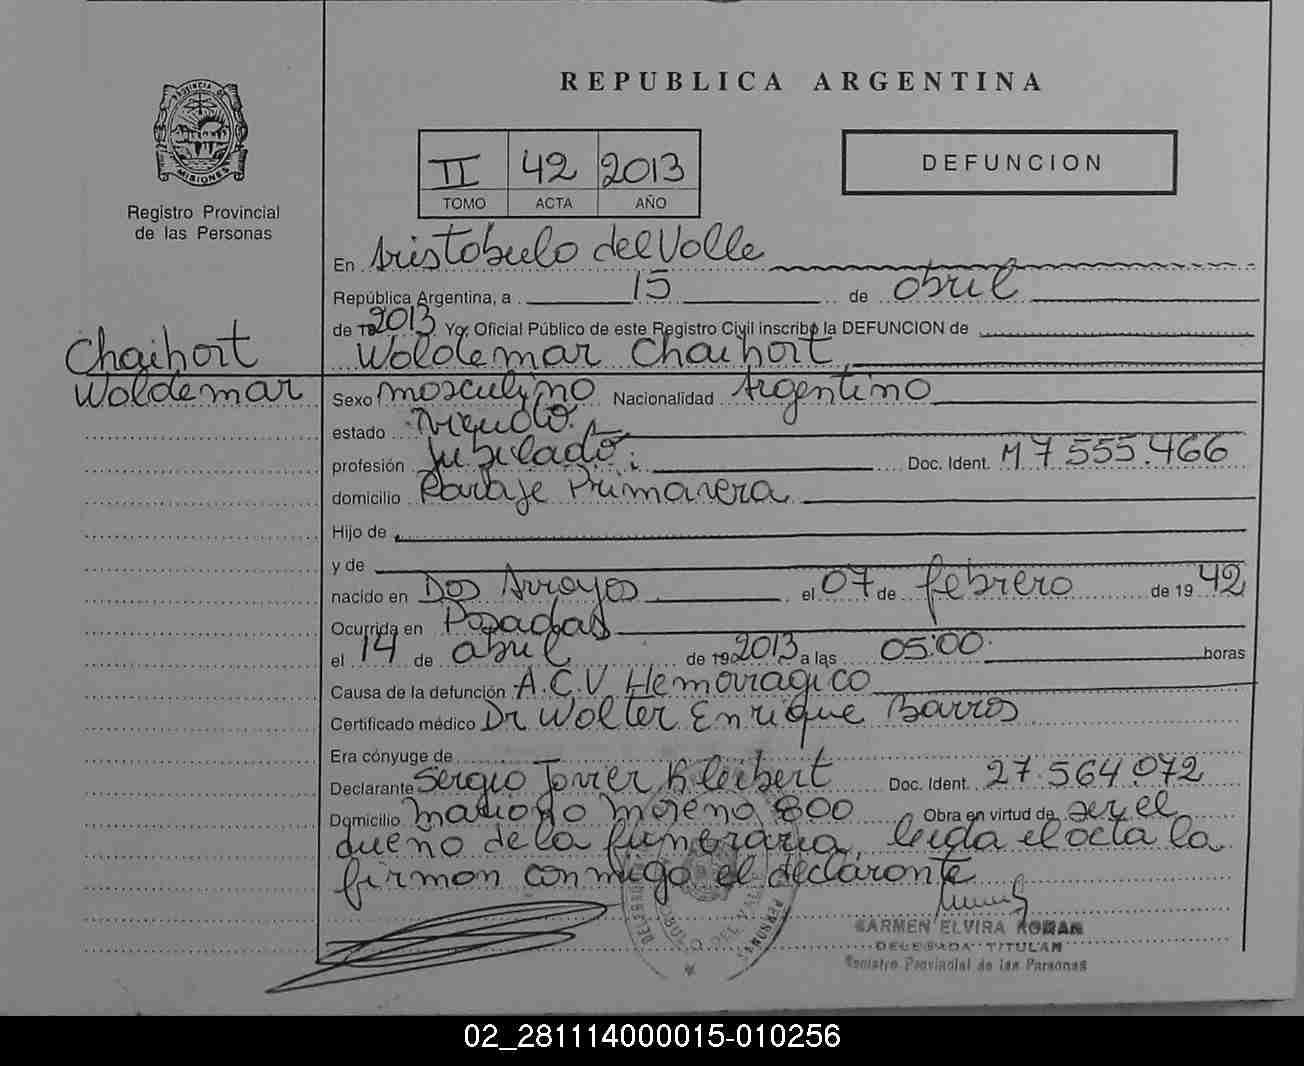 REPUBLICA ARGENTINA
PROVINCIA DE
MISIONES
Registro Provincial
de las Personas
II 42 2013
TOMO ACTA AÑO
DEFUNCION
En Aristobulo del Valle
República Argentina, a 15 de abril
de 19 2013 Yo, Oficial Público de este Registro Civil inscribo la DEFUNCION de
Chaihort Woldemar Chaihort
Woldemar Sexo masculino Nacionalidad Argentino
estado Viudo
profesión Jubilado. Doc. Ident. M 7 555.466
domicilio Paraje Primavera
Hijo de
y de
nacido en Dos Arroyos el 07 de febrero de 19 42
Ocurrida en Posadas
el 14 de abril de 19 2013 a las 05:00 horas
Causa de la defunción A.C.V Hemorragico
Certificado médico Dr Walter Enrique Barros
Era cónyuge de
Declarante Sergio Javier Kleibert Doc. Ident. 27.564.072
Domicilio mariano moreno 800 Obra en virtud de ser el
dueño de la funeraria, leida el acta la
firman conmigo el declarante
CARMEN ELVIRA ROMAN
DELEGADA TITULAR
Registro Provincial de las Personas
02_281114000015-010256